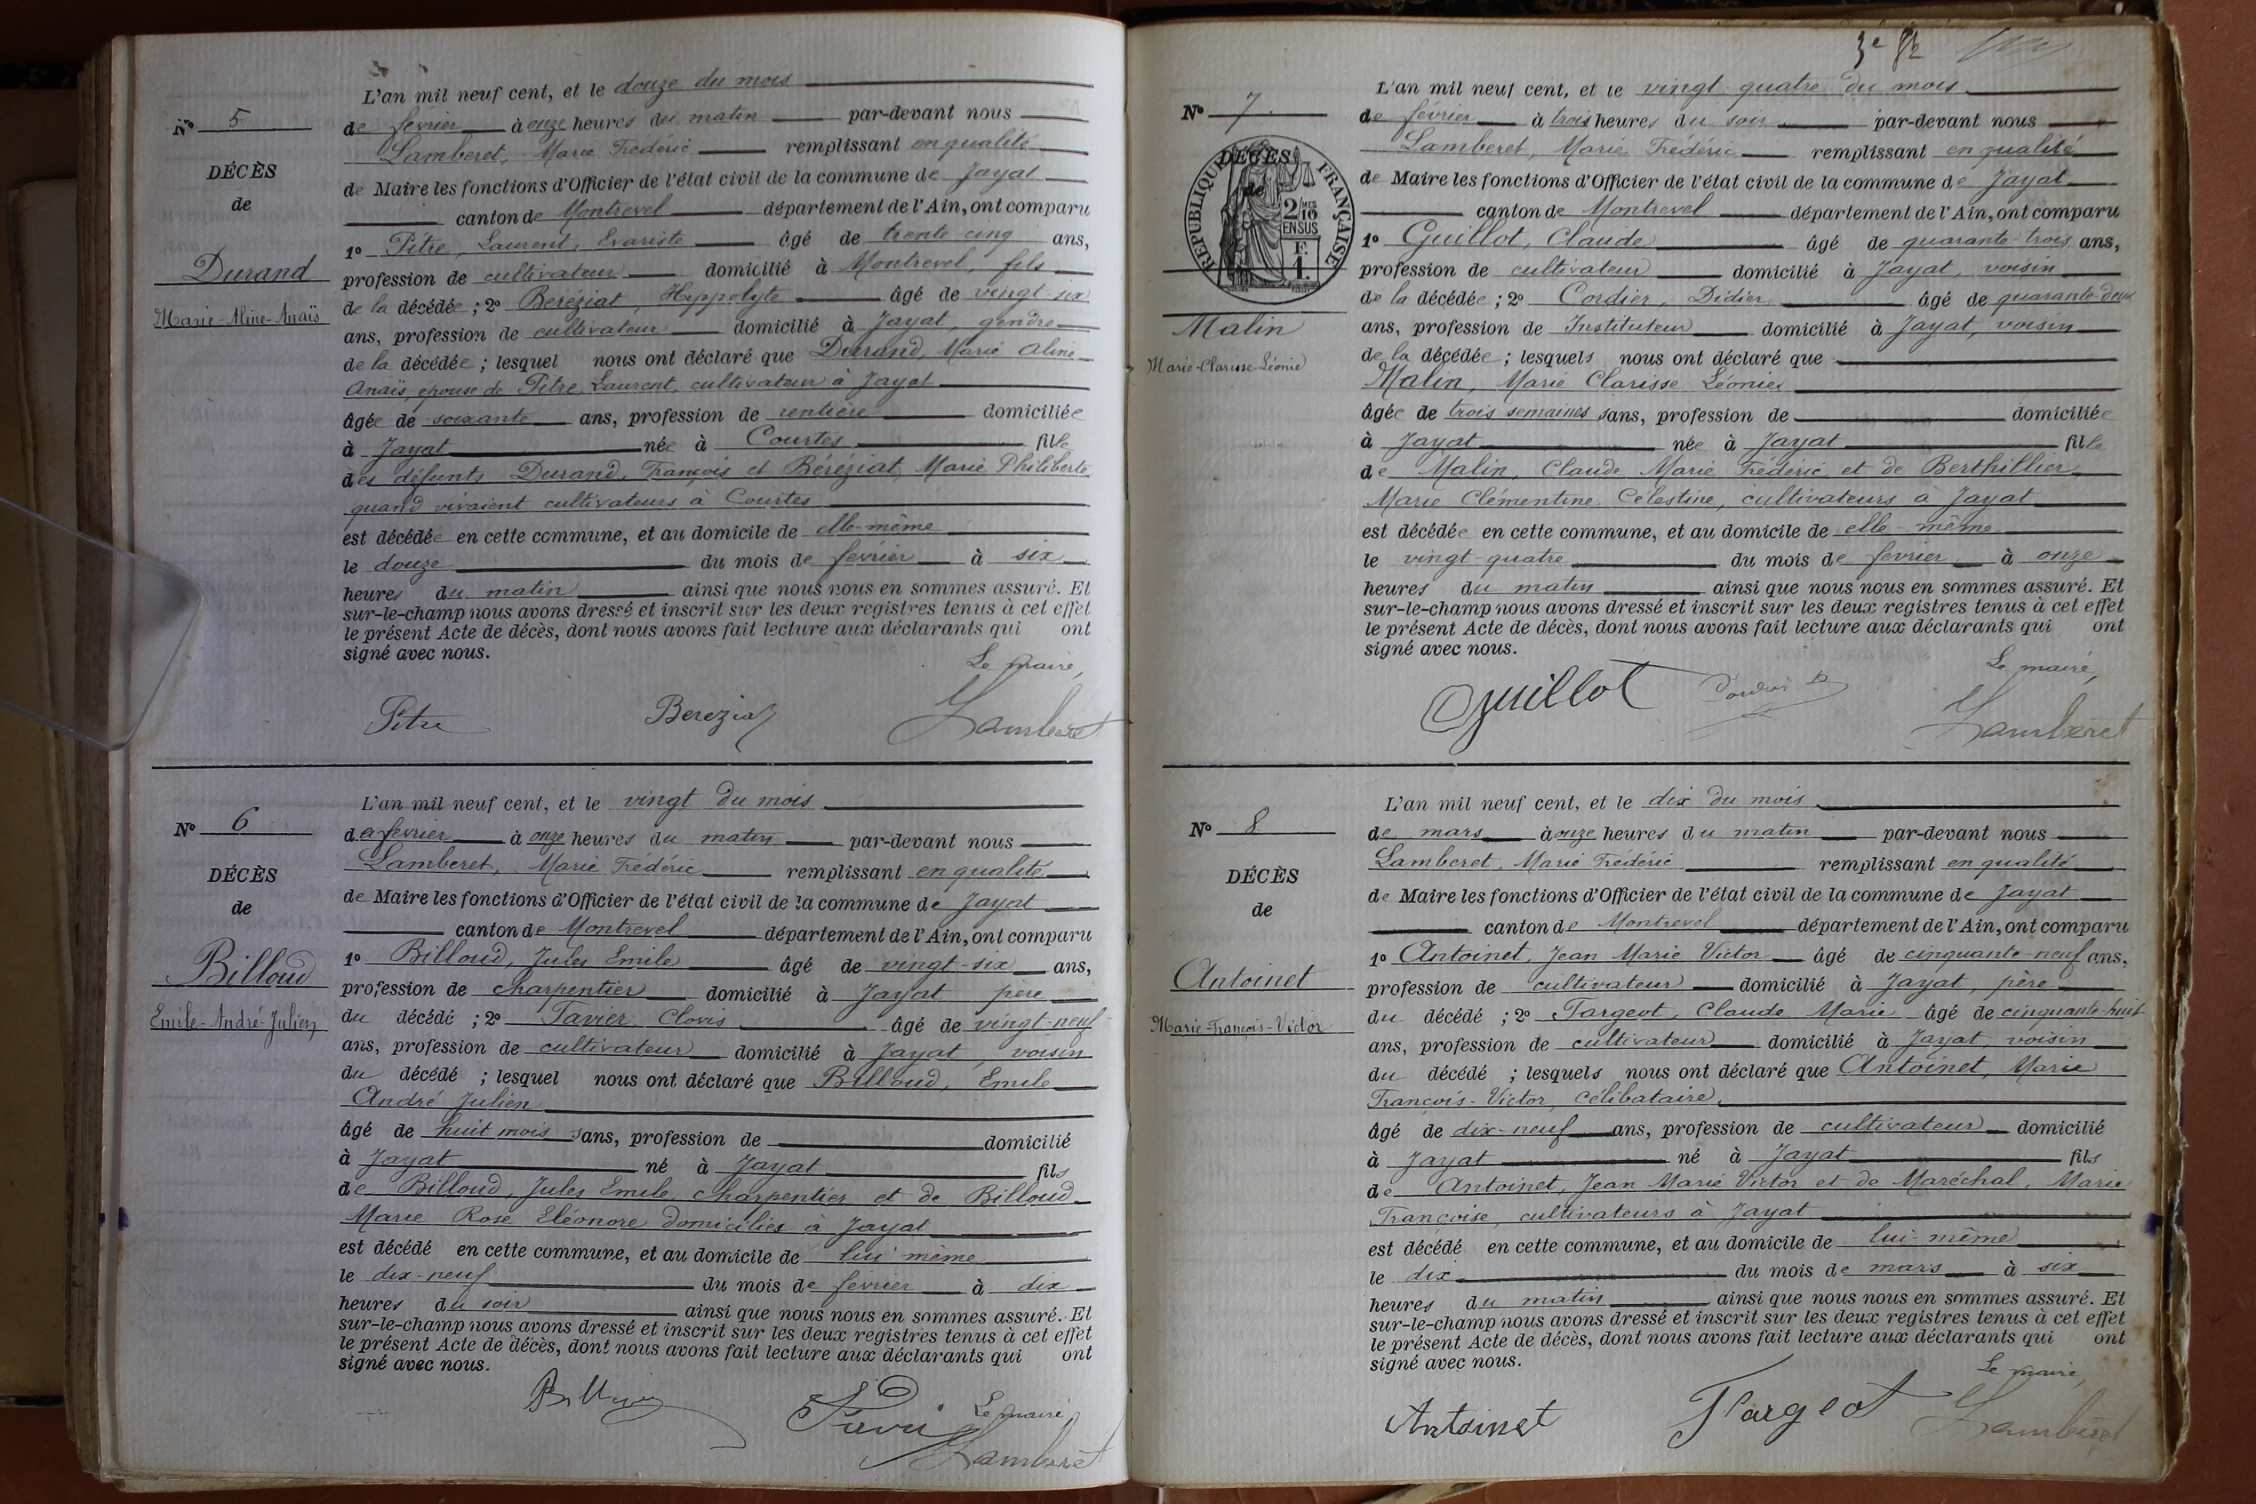 N° 5
DÉCÈS
de
Durand
Marie-Aline-Anaïs
L'an mil neuf cent, et le douze du mois
de fevrier à onze heures du matin par-devant nous
Lamberet, Marie Frédéric remplissant en qualité
de Maire les fonctions d'Officier de l'état civil de la commune de Jayat
canton de Montrevel département de l'Ain, ont comparu
1° Pitre, Laurent, Evariste âgé de trente cinq ans,
profession de cultivateur domicilié à Montrevel, fils
de la décédée ; 2° Beréziat, Hyppolyte âgé de vingt-six
ans, profession de cultivateur domicilié à Jayat, gendre
de la décédée ; lesquel nous ont déclaré que Durand, Marie Aline
Anaïs, épouse de Pitre, Laurent, cultivateur à Jayat
âgée de soixante ans, profession de rentière domiciliée
à Jayat née à Courtes fille
des défunts Durand, François et Béréziat, Marie Philiberte
quand vivaient cultivateurs à Courtes
est décédée en cette commune, et au domicile de elle-même
le douze du mois de fevrier à six
heures du matin ainsi que nous nous en sommes assuré. Et
sur-le-champ nous avons dressé et inscrit sur les deux registres tenus à cet effet
le présent Acte de décès, dont nous avons fait lecture aux déclarants qui ont
signé avec nous.
Le maire,
Pitre Bereziat Lamberet
N° 6
DÉCÈS
de
Billoud
Emile-André-Julien
L'an mil neuf cent, et le vingt du mois
de fevrier à onze heures du matin par-devant nous
Lamberet, Marie Frédéric remplissant en qualité
de Maire les fonctions d'Officier de l'état civil de la commune de Jayat
canton de Montrevel département de l'Ain, ont comparu
1° Billoud, Jules Emile âgé de vingt-six ans,
profession de charpentier domicilié à Jayat père
du décédé ; 2° Favier Clovis âgé de vingt-neuf
ans, profession de cultivateur domicilié à Jayat, voisin
du décédé ; lesquel nous ont déclaré que Billoud, Emile
André Julien
âgé de huit mois sans, profession de domicilié
à Jayat né à Jayat fils
de Billoud, Jules Emile, charpentier et de Billoud
Marie Rose Eléonore domiciliés à Jayat
est décédé en cette commune, et au domicile de lui même
le dix-neuf du mois de fevrier à dix
heures du soir ainsi que nous nous en sommes assuré. Et
sur-le-champ nous avons dressé et inscrit sur les deux registres tenus à cet effet
le présent Acte de décès, dont nous avons fait lecture aux déclarants qui ont
signé avec nous.
Le maire,
Lamberet
3e
N° 7
DÉCÈS
de
RÉPUBLIQUE FRANÇAISE
2 MES 10 EN SUS
F. 1.
Malin
Marie-Clarisse-Léonie
L'an mil neuf cent, et le vingt-quatre du mois
de février à trois heures du soir par-devant nous
Lamberet, Marie Frédéric remplissant en qualité
de Maire les fonctions d'Officier de l'état civil de la commune de Jayat
canton de Montrevel département de l'Ain, ont comparu
1° Guillot, Claude âgé de quarante-trois ans,
profession de cultivateur domicilié à Jayat, voisin
de la décédée ; 2° Cordier, Didier âgé de quarante-deux
ans, profession de Instituteur domicilié à Jayat, voisin
de la décédée ; lesquels nous ont déclaré que
Malin, Marie Clarisse Léonie
âgée de trois semaines sans, profession de domiciliée
à Jayat née à Jayat fille
de Malin, Claude Marie Fréderic et de Berthillier
Marie Clémentine Célestine, cultivateurs à Jayat
est décédée en cette commune, et au domicile de elle-même
le vingt-quatre du mois de fevrier à onze
heures du matin ainsi que nous nous en sommes assuré. Et
sur-le-champ nous avons dressé et inscrit sur les deux registres tenus à cet effet
le présent Acte de décès, dont nous avons fait lecture aux déclarants qui ont
signé avec nous.
Le maire,
Guillot Cordier D Lamberet
N° 8
DÉCÈS
de
Antoinet
Marie-François-Victor
L'an mil neuf cent, et le dix du mois
de mars à onze heures du matin par-devant nous
Lamberet, Marie Frédéric remplissant en qualité
de Maire les fonctions d'Officier de l'état civil de la commune de Jayat
canton de Montrevel département de l'Ain, ont comparu
1° Antoinet, Jean Marie Victor âgé de cinquante-neuf ans,
profession de cultivateur domicilié à Jayat, père
du décédé ; 2° Fargeot, Claude Marie âgé de cinquante-huit
ans, profession de cultivateur domicilié à Jayat, voisin
du décédé ; lesquels nous ont déclaré que Antoinet, Marie
François-Victor, célibataire,
âgé de dix-neuf ans, profession de cultivateur domicilié
à Jayat né à Jayat fils
de Antoinet, Jean Marie Victor et de Maréchal, Marie
Françoise, cultivateurs à Jayat
est décédé en cette commune, et au domicile de lui-même
le dix du mois de mars à six
heures du matin ainsi que nous nous en sommes assuré. Et
sur-le-champ nous avons dressé et inscrit sur les deux registres tenus à cet effet
le présent Acte de décès, dont nous avons fait lecture aux déclarants qui ont
signé avec nous.
Le maire,
Antoinet Fargeot Lamberet